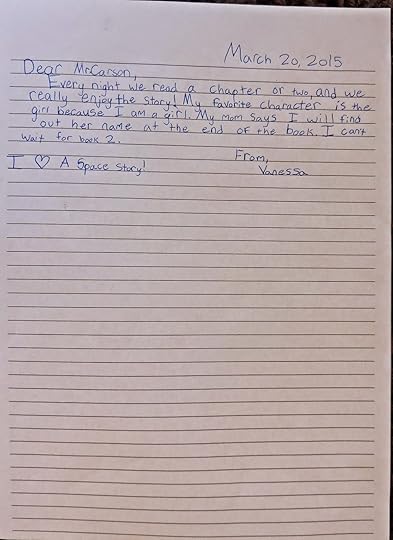 March 20, 2015
Dear Mr.Carson,
Every night we read a chapter or two, and we
really enjoy the story! My favorite character is the
girl because I am a girl. My mom says I will find
out her name at the end of the book. I can't
wait for book 2.
From,
Vanessa
I ♡ A Space Story!